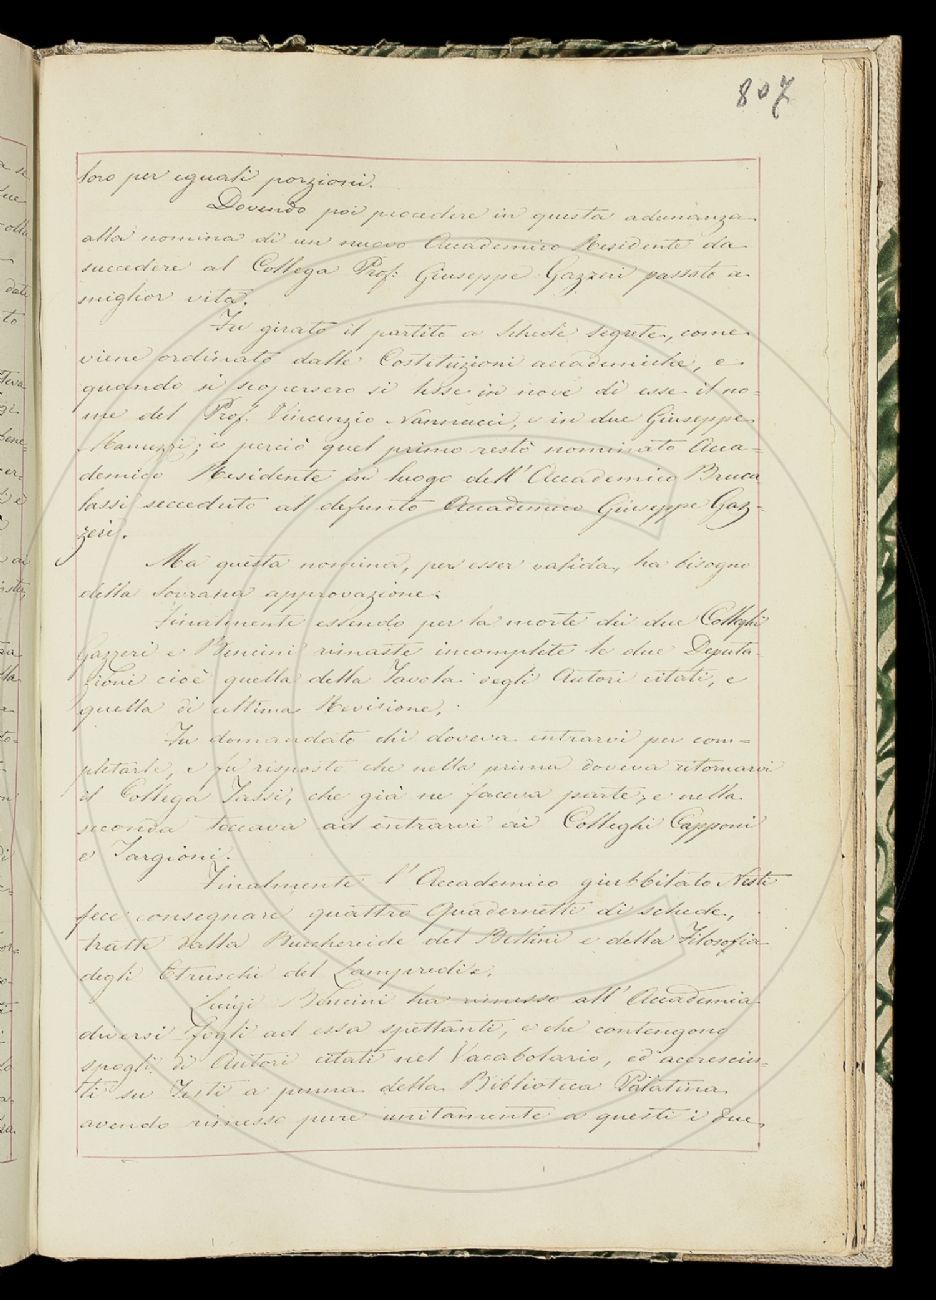 807
loro per eguali porzioni.
Dovendo poi procedere in questa adunanza
alla nomina di un nuovo Accademico Residente da
succedere al Collega Prof. Giuseppe Gazzeri passato a
miglior vita.
Fu girato il partito a schede segrete, come
viene ordinato dalle Costituzioni accademiche, e
quando si scopersero si lesse in nove di esse il no=
me del Prof. Vincenzio Nannucci, e in due Giuseppe
Manuzzi; e perciò quel primo restò nominato Acca=
demico Residente in luogo dell'Accademico Bruca
lassi succeduto al defunto Accademico Giuseppe Gaz=
zeri.
Ma questa nomina, per esser valida, ha bisogno
della Sovrana approvazione.
Finalmente essendo per la morte dei due Colleghi
Gazzeri e Bencini rimaste incomplete le due Deputa=
zioni cioè quella della Tavola degli Autori citati, e
quella di ultima Revisione,
Fu domandato chi doveva entrarvi per com=
pletarle, e fu risposto che nella prima doveva ritornarvi
il Collega Tassi, che già ne faceva parte, e nella
seconda toccava ad entrarvi ai Colleghi Capponi
e Targioni.
Finalmente l'Accademico giubbilato Nesti
fece consegnare quattro Quadernetti di schede,
tratte dalla Bucchereide del Bellini e della Filosofia
degli Etruschi del Lampredi.
Luigi Bencini ha rimesso all'Accademia
diversi fogli ad essa spettanti, e che contengono
spogli di Autori citati nel Vocabolario, ed accresciu=
ti su Testi a penna della Biblioteca Palatina
avendo rimesso pure unitamente a questi i due